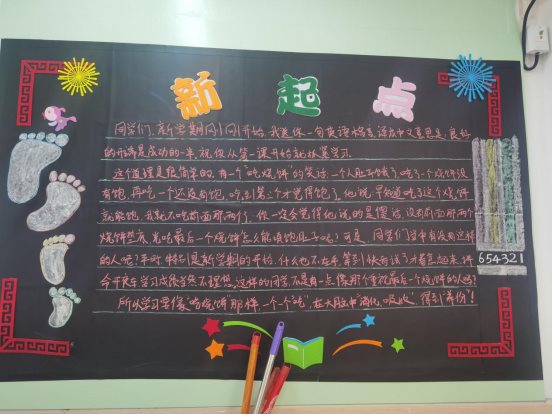 新起点
同学们，新学期刚刚开始，我送你一句英语格言，译成中文意思是：良好
的开端是成功的一半，祝你从第一课开始就抓紧学习
这个道理是很简单的，有个“吃烧饼”的笑话：一个人肚子饿了，吃了一个烧饼没
有饱，再吃一个还没有饱，吃到第三个才觉得饱了。他说，早知道吃了这个烧饼
就能饱，我就不吃前面那两个。你一定会觉得他说的是傻话，没有前面那两个
烧饼垫底，光吃最后一个烧饼怎么能填饱肚子呢？可是，同学们当中有没有这样
的人呢？平时，特别是新学期的开始，什么也不在乎，等到快考试了才着急起来，
今开夜车，学习成绩当然不理想。这样的同学，不是有一点像那个重视最后一个烧饼的人吗？
所以学习要像“吃烧饼”那样，一个一个“吃”，在大脑中“消化、吸收”，得到“养份”！
654321